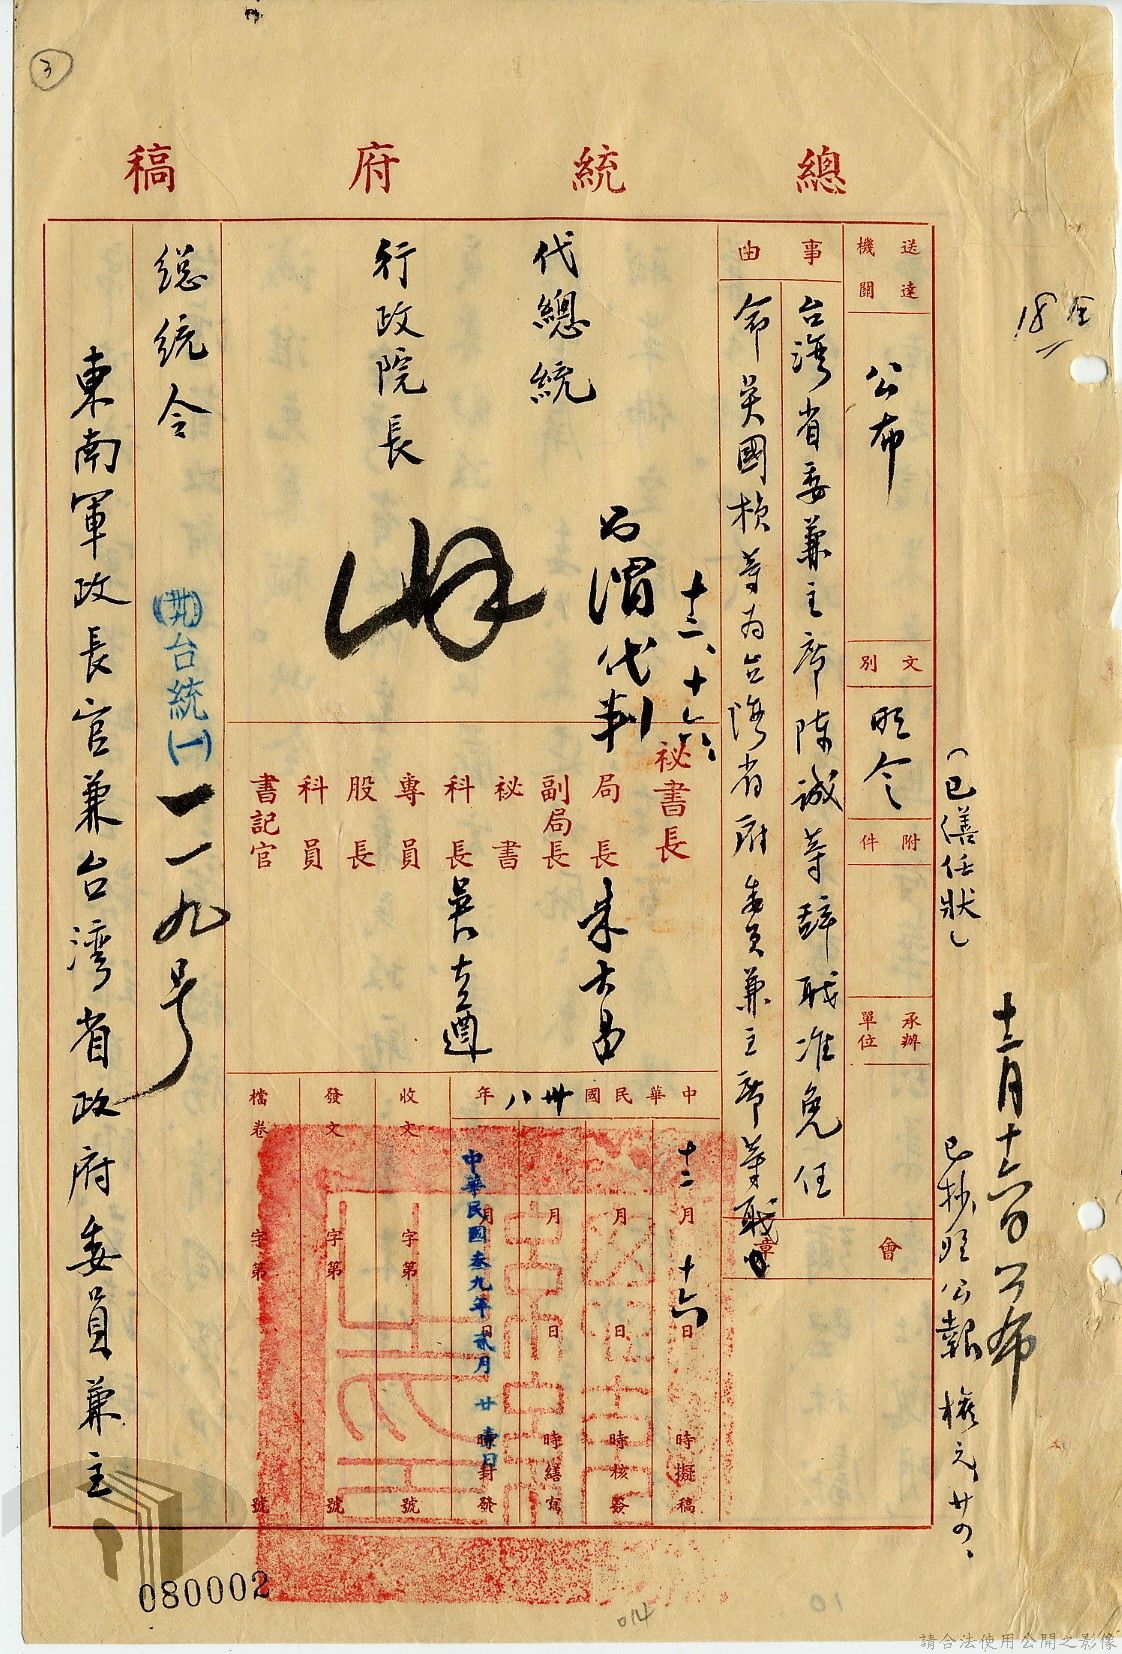 3
總統府稿
18
送達機關
公布
文別
明令
附件
承辦單位
會章
事由
台灣省委兼主席陳誠等辭職准免任
命吳國楨等為台灣省府委員兼主席等職由
代總統
行政院長
十二、十六、
渭代判
秘書長
局長
朱大昌
副局長
秘書
科長
專員
股長
科員
書記官
中華民國卅八年
十二月十六日 時擬稿
月 日 時核簽
月 日 時繕寫
月 日 時封發
中華民國叁九年貳月廿壹日
收文 字第 號
發文 字第 號
檔卷 字第 號
總統令
(卅)台統(一)一一九号
東南軍政長官兼台湾省政府委員兼主
(已繕任狀)
十二月十六日公布
已抄登公報
080002
014
10
請合法使用公開之影像